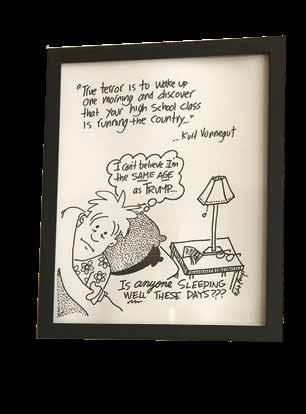 "True terror is to wake up
one morning and discover
that your high school class
is running the country..."
... Kurt Vonnegut
I can't believe I'm
the SAME AGE
as TRUMP...
IS anyone SLEEPING
WELL THESE DAYS???